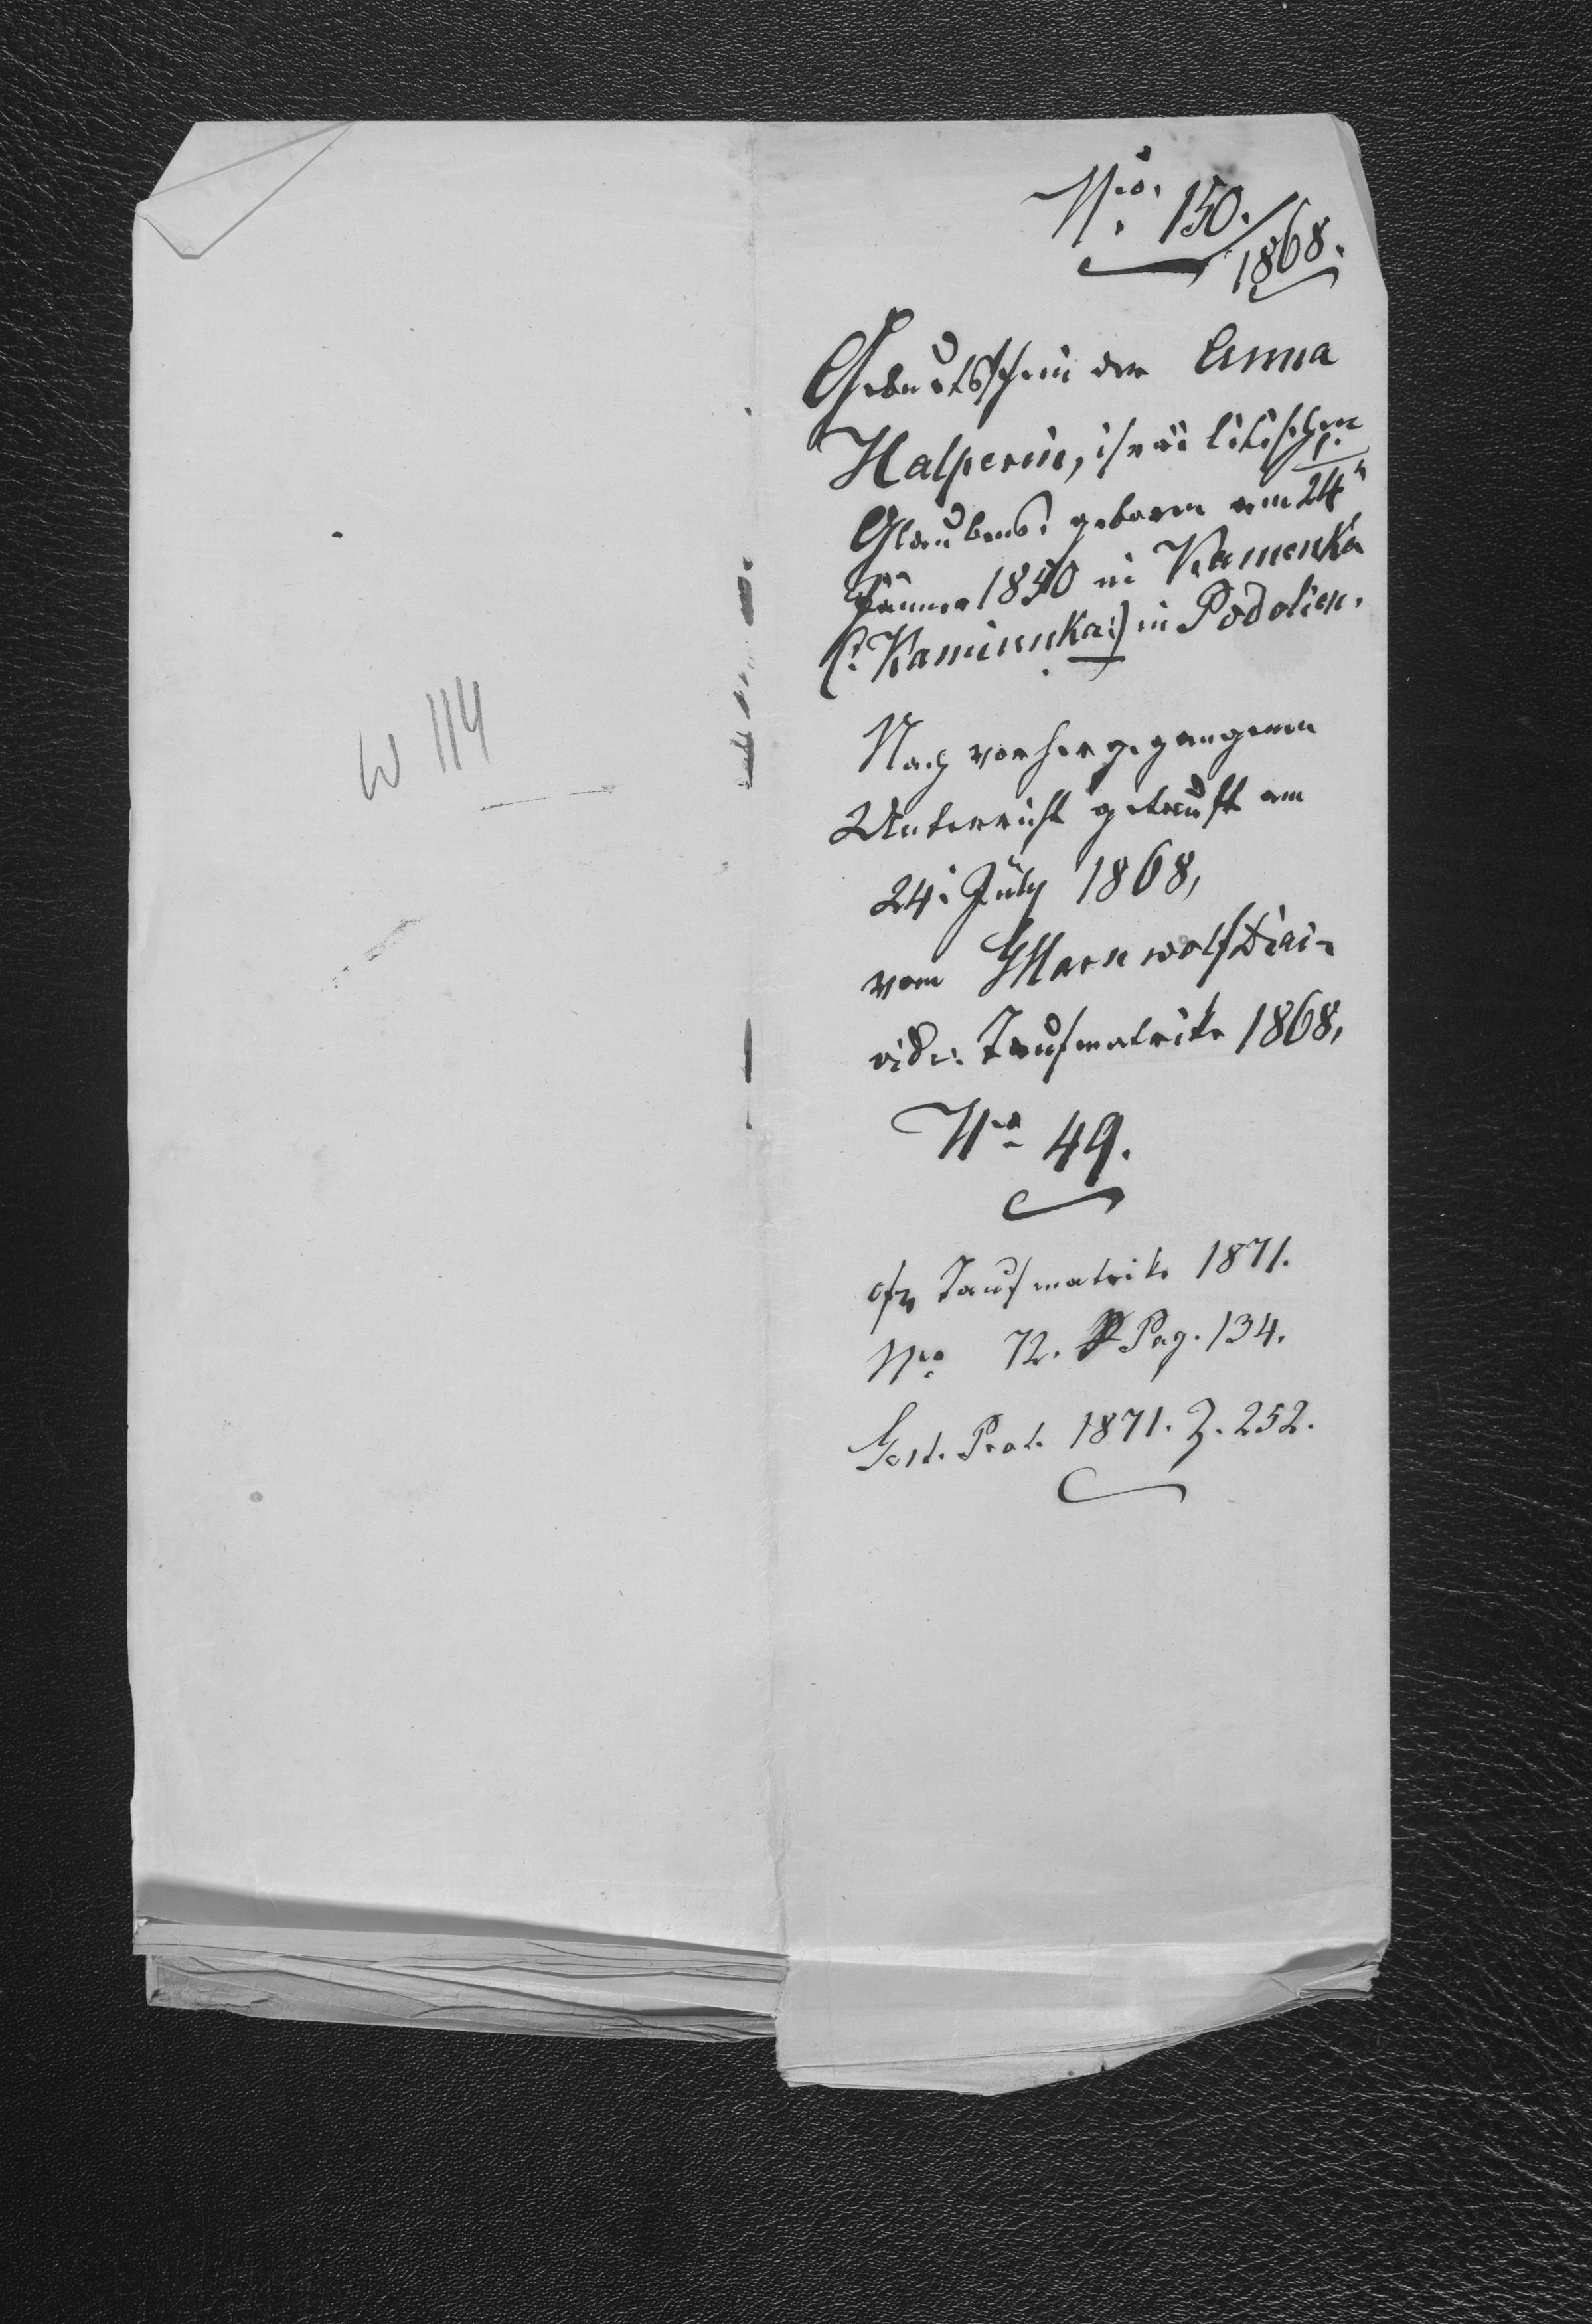 W 114
Nro. 150./1868.
Geburtsschein der Anna
Halperin, israelitischen
Glaubens, geboren am 24n
Jänner 1850 in Kamenka
(: Kamienka :) in Podolien.
Nach vorhergegangenem
Unterricht getauft am
24. July 1868,
vom
vide: Taufmatrike 1868,
No 49.
Taufmatrik 1871.
Nro 72. Pag. 134.
Gest. Prot. 1871. Z. 252.